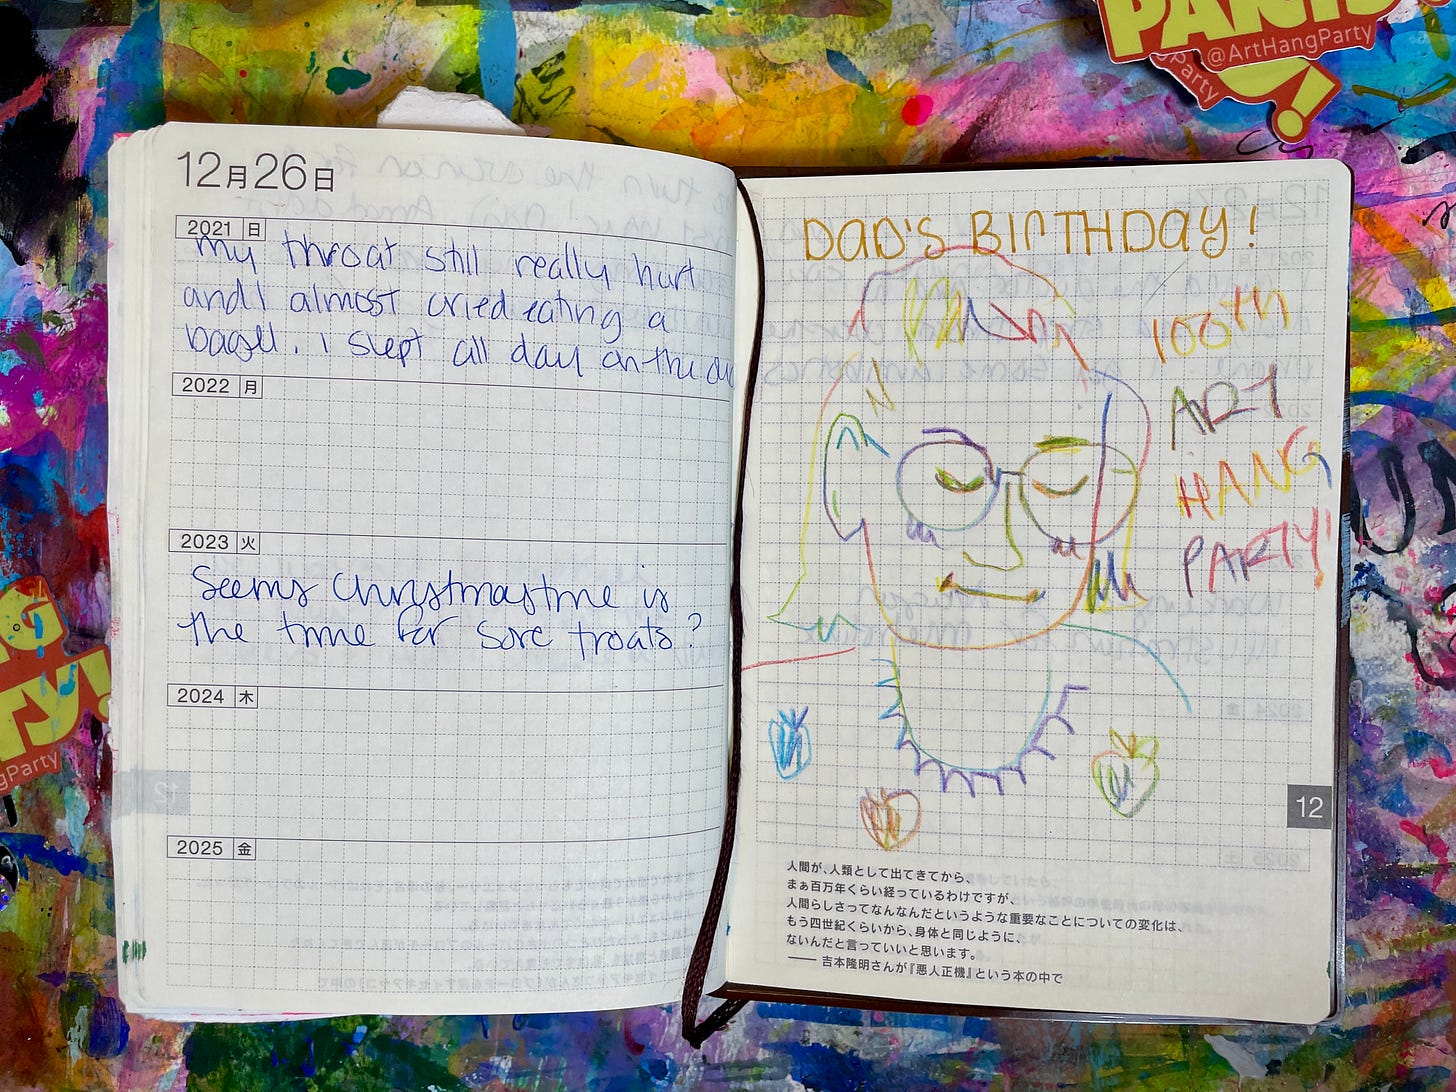 PARTY
@ArtHangParty
Party
!
12月26日
2021 日
my throat still really hurt
and I almost cried eating a
bagel. I slept all day on the
2022 月
2023 火
Seems Chrystmastime is
the time for sore troats?
2024 木
2025 金
12
DAD'S BIRTHDAY!
100TH
ART
HANG
PARTY!
12
人間が、人類として出てきてから、
まぁ百万年くらい経っているわけですが、
人間らしさってなんなんだというような重要なことについての変化は、
もう四世紀くらいから、身体と同じように、
ないんだと言っていいと思います。
—— 吉本隆明さんが『悪人正機』という本の中で
G
TY!
gParty